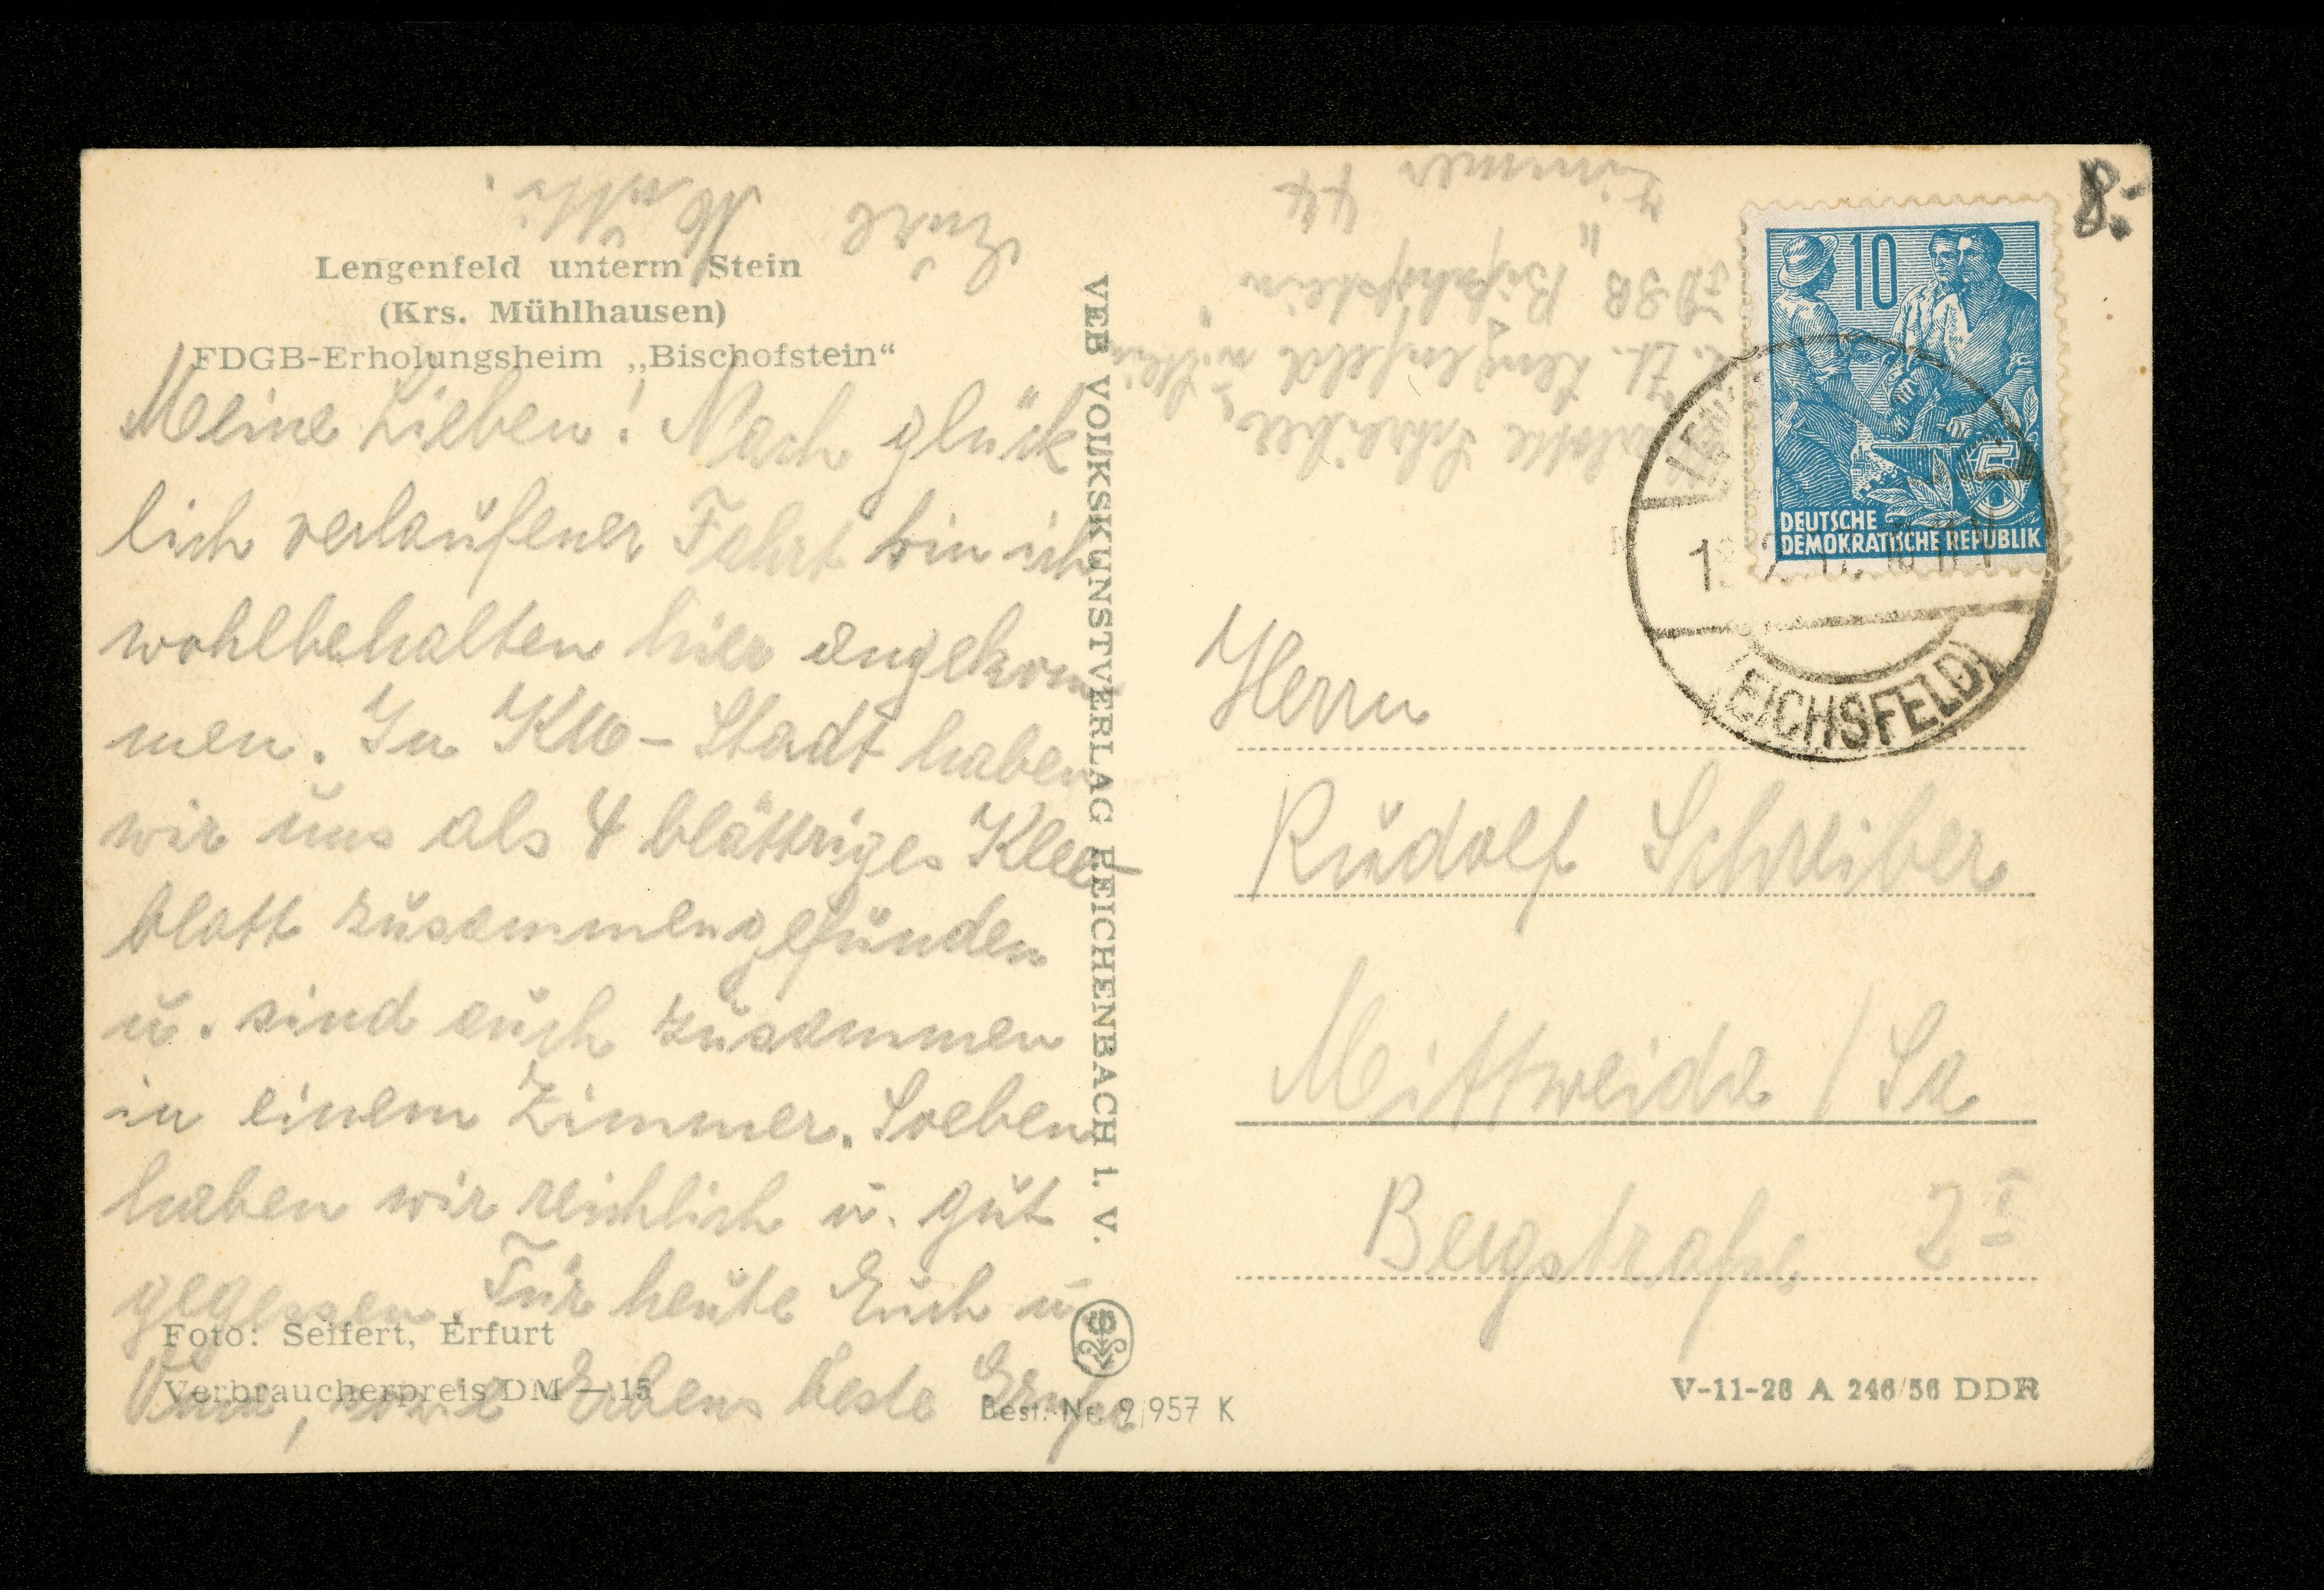 Lengenfeld unterm Stein
(Krs. Mühlhausen)
FDGB-Erholungsheim „Bischofstein“
Meine Lieben! Nach glück
lich verlaufener Fahrt bin ich
wohlbehalten hier angekom
men. In KM-Stadt haben
wir uns als 4 blättriges Klee-
blatt zusammengefunden
u. sind auch zusammen
in einem Zimmer. Soeben
haben wir reichlich u. gut
gegessen. Für heute Euch u
sowie Erbens beste Grüße
Eure Mutti.
Foto: Seifert, Erfurt
Verbraucherpreis DM —15
VEB VOLKSKUNSTVERLAG REICHENBACH i. V.
Best.-Nr. 9/957 K
Schreiber,
z. Zt. Lengenfeld u. Stein
FDGB „Bischofstein“
Zimmer 44
8.-
10
5
DEUTSCHE
DEMOKRATISCHE REPUBLIK
(EICHSFELD)
Herrn
Rudolf Schreiber
Mittweida / Sa
Bergstraße 2 I
V-11-28 A 246/56 DDR